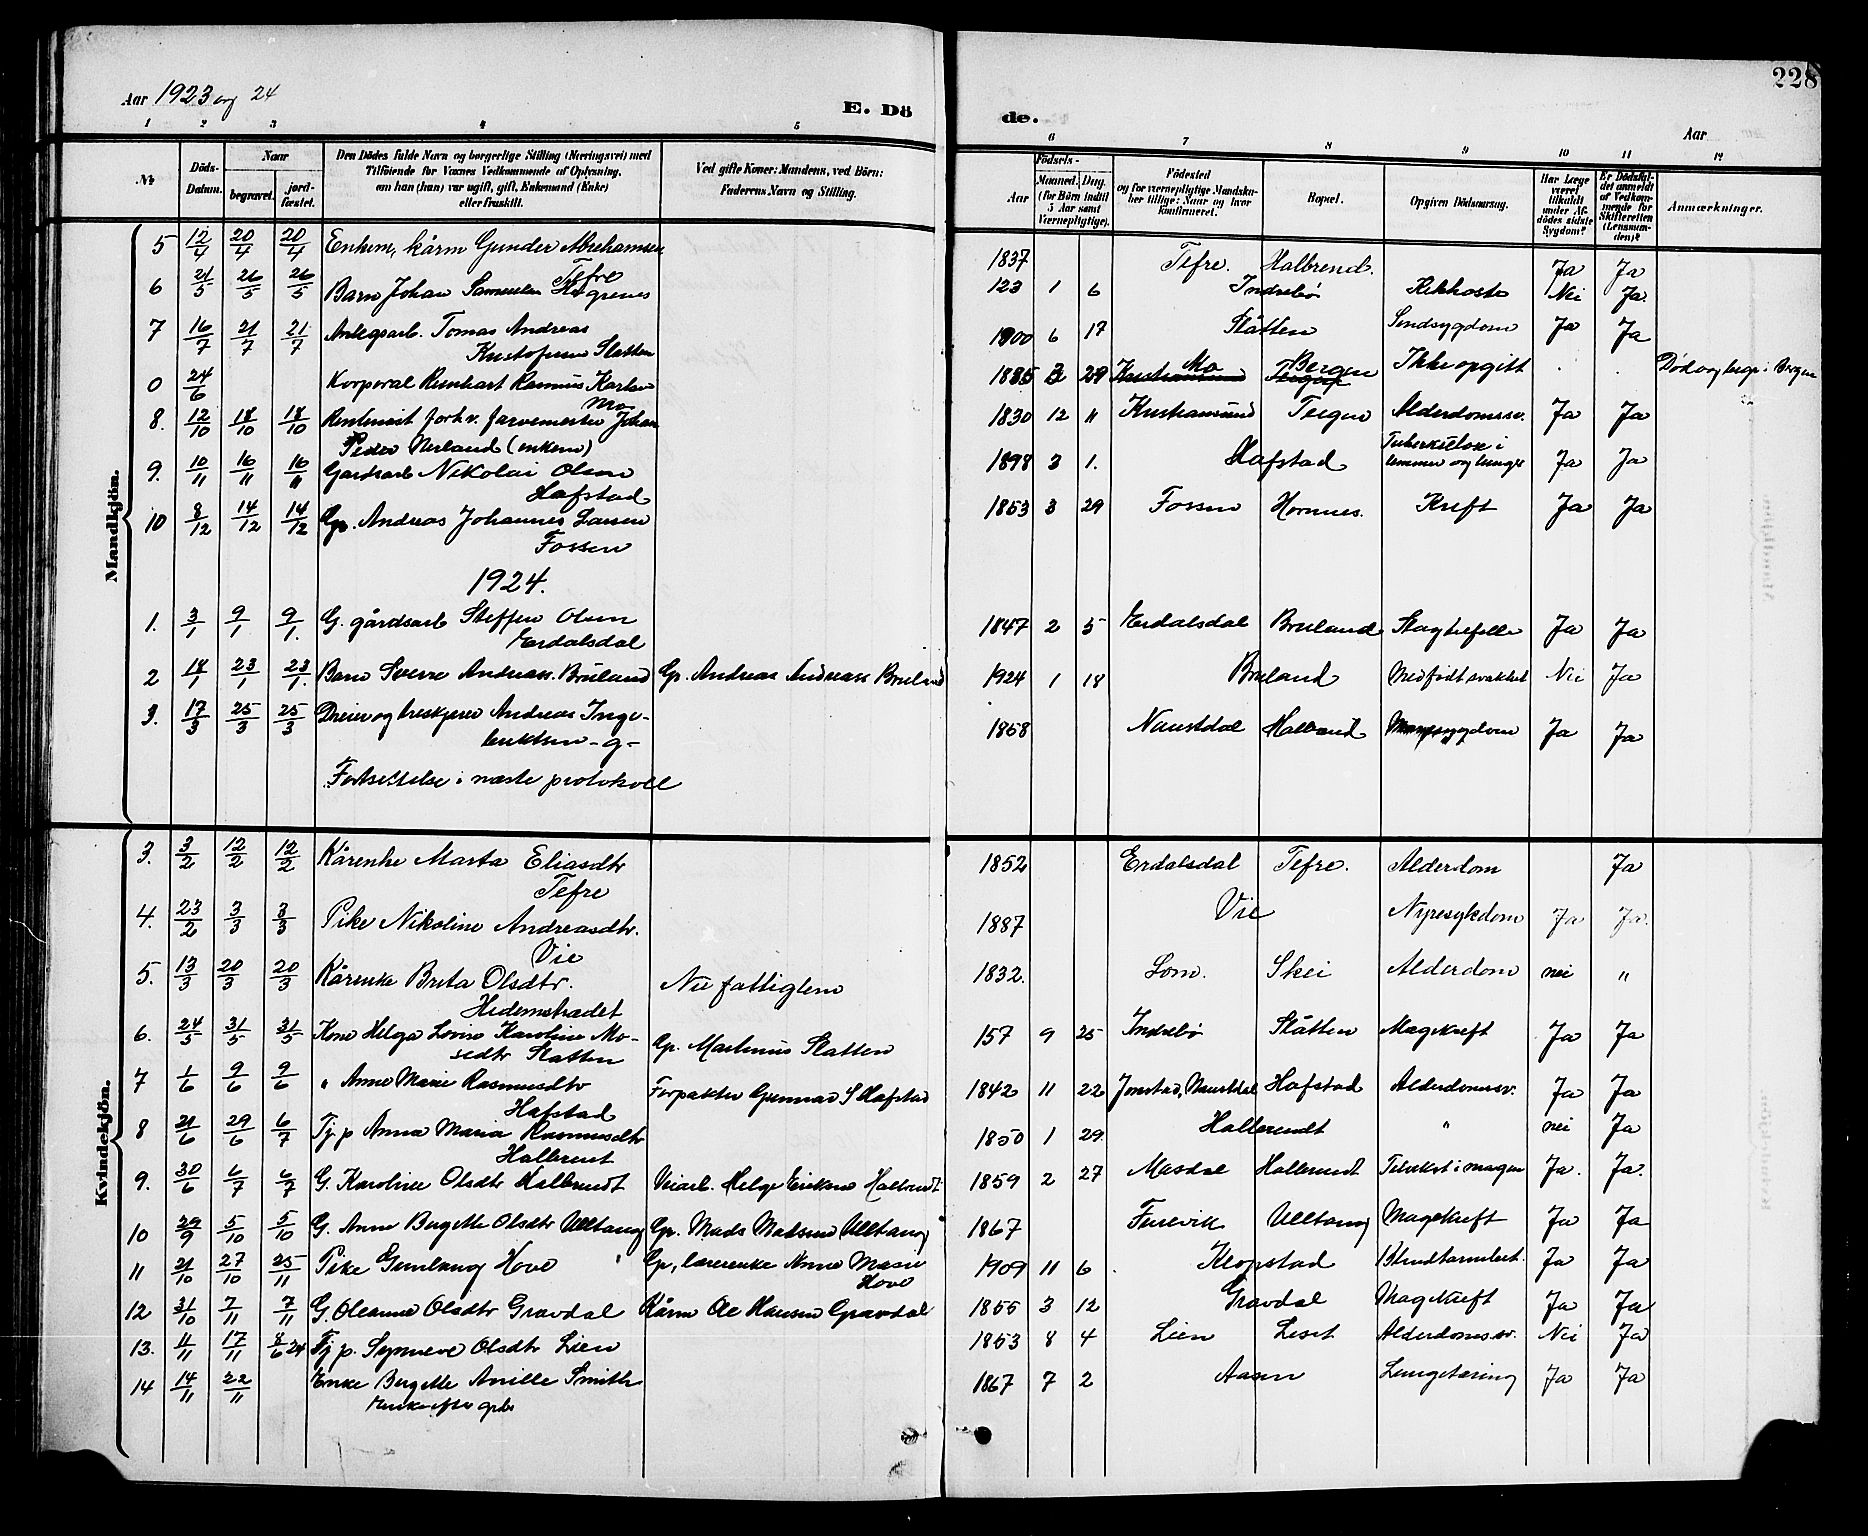 Aar 1923 og 24
E. Dö
de.
228
Aar
1 2 3 4 5 6 7 8 9 10 11 12
№
Döds-Datum.
Naar
begravet.
jord-fæstet.
Den Dödes fulde Navn og borgerlige Stilling (Næringsvei) med
Tilföiende for Voxnes Vedkommende af Oplysning,
om han (hun) var ugift, gift, Enkemand (Enke)
eller fraskilt.
Ved gifte Koner: Mandens, ved Börn:
Faderens Navn og Stilling.
Födsels-
Aar
Maaned. Dag.
(for Börn indtil
5 Aar samt
Værnepligtige).
Födested
og for værnepligtige Mandska-
ber tillige: Naar og hvor
konfirmeret.
Bopæl.
Opgiven Dödsaarsag.
Har Læge
været
tilkaldt
under Af-
dödes sidste
Sygdom?
Er Dödsfal-
det anmeldt
af Vedkom-
mende for
Skifteretten
(Lensman-
den)?
Anmærkninger.
Mandkjön.
5 12/4 20/4 20/4 Enkem, kårm Gunder Abrahamsen
Tefre 1837 Tefre. Halbrend. Ja Ja
6 21/5 26/5 26/5 Barn Johan Samuelsen 123 1 6 Indrebø Kikhoste Nei Ja
7 16/7 21/7 21/7 Anlegsarb. Tomas Andreas
Kristofersen Slåtten 1900 6 17 Slåtten Sindsygdom Ja Ja
0 24/6 Korporal Reinhart Rasmus Karlsen
Mo 1885 3 29 Mo Bergen Ikke opgitt Død og begr. i Bergen
8. 12/10 18/10 18/10 Rentenist forhv. farvemester Johan
Peder Nerland (enkem) 1830 12 " Kristiansund Teigen Alderdomssv. Ja Ja
9. 10/11 16/11 16/11 Gardsarb Nikolai Olsen
Hafstad 1898 3 1. Hafstad Tuberkulose i
lemmer og lunge Ja Ja
10 8/12 14/12 14/12 Gp. Andreas Johannes Larsen
Fossen 1853 3 29 Fossen Hornnes. Kreft Ja Ja
1924.
1. 3/1 9/1 9/1. G. gårdsarb Steffen Olsen
Erdalsdal 1847 2 5 Erdalsdal Bruland Slagtilfelle Ja Ja
2 18/1 23/1 23/1. Barn Sverre Andreass. Bruland Gp. Andreas Andreass Bruland 1924 1 18 Bruland Medfødt svakhet Nei Ja
3. 17/3 25/3 25/3 Dreier og treskjerer Andreas Inge-
briktsen - g - 1858 Naustdal Halbrend Ja Ja
Fortsettelse i næste protokoll
Kvindekjön.
3. 3/2 12/2 12/2 Kårenke Marta Eliasdtr
Tefre 1852 Erdalsdal Tefre. Alderdom Ja
4. 23/2 3/3 3/3 Pike Nikoline Andreasdtr.
Vie 1887 Vie Nyresykdom Ja Ja.
5. 13/3 20/3 20/3 Kårenke Brita Olsdtr.
Hedemstrædet Nu fattiglem 1832. Lom. Skei Alderdom nei "
6. 24/5 31/5 31/5 Kone Helga Lovise Karoline Mo-
sedtr Slåtten Gp. Martinus Slåtten 157 9 25 Indrebø Slåtten Magekreft Ja Ja
7 1/6 9/6 9/6 " Anne Marie Rasmusdtr
Hafstad Forpakter Gunnar S Hafstad 1842 11 22 Jonstad, Naustdal Hafstad Alderdomssv. Ja Ja
8 21/6 29/6 6/7 Tj. p Anna Maria Rasmusdtr
Halbrent 1850 1 29. Halbrendt " nei Ja
9. 30/6 6/7 6/7 G. Karoline Olsdtr Halbrendt Veiarb. Helge Eriksen Halbrendt 1859 2 27 Masdal Halbrendt Tilvekst i magen Ja. Ja.
10 29/9 5/10 5/10 G. Anne Bergitte Olsdtr Ulltang Gp. Mads Madsen Ulltang 1867 Furevik Ulltang Magekreft Ja Ja
11 21/10 27/10 25/11 Pike Gunlaug Hove Gp, lærerenke Anne Marie
Hove 1909 11 6 Klopstad Blindtarmbet. Ja Ja
12 31/10 7/11 7/11 G. Oleanna Olsdtr Gravdal Kårm Ole Hansen Gravdal 1855 3 12 Gravdal Magekreft Ja Ja
13. 11/11 17/11 8/6 24 Tj. p. Synneve Olsdtr Lien 1853 8 4 Lien Leset Alderdoms. sv. Nei Ja
14 14/11 22/11 Enke Bergitte Amille Smith
Enke efter gbr 1867 7 2 Aasen Lungetæring Ja Ja